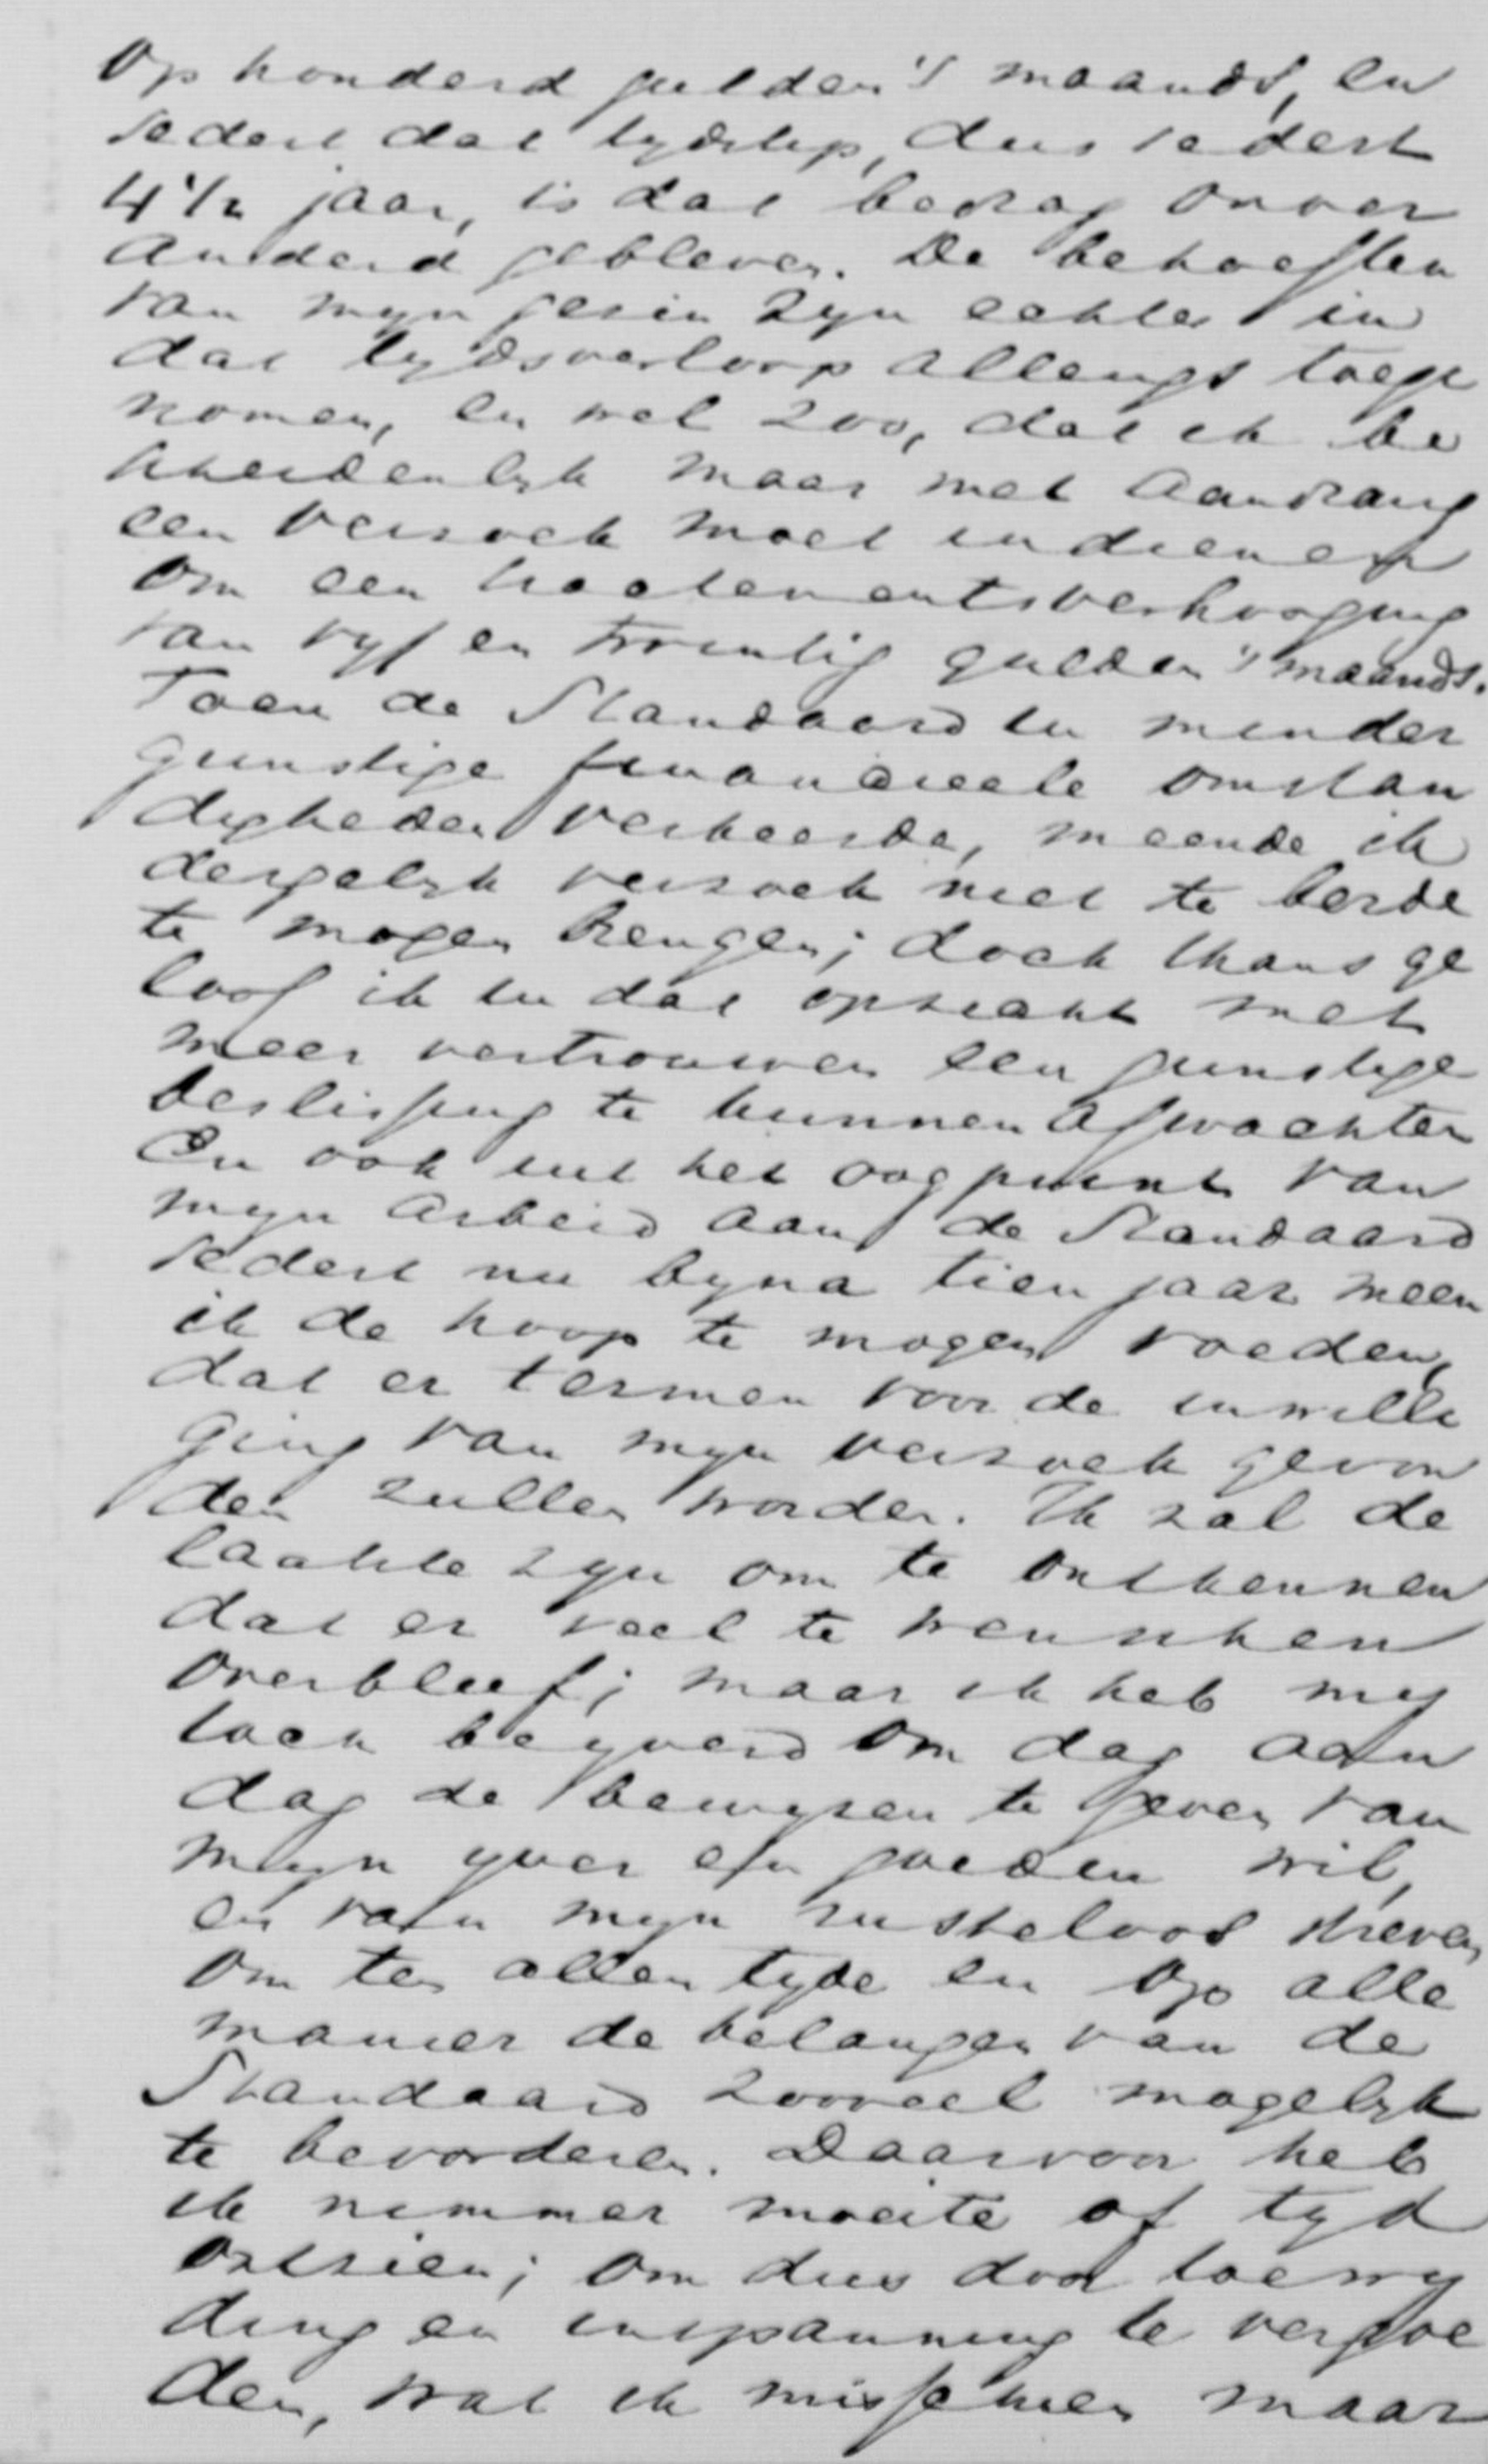 op honderd gulden 's maands, en
sedert dat tydstip, dus sedert
4 1/2 jaar, is dat bedrag onver
anderd gebleven. De behoeften
van myn gezin zyn echter in
dat tydsverloop allengs toege
nomen, en wel zoo, dat ik be
scheidenlyk maar met aandrang
een verzoek moet indienen
om een tractementsverhooging
van vyf en twintig gulden 's maands.
Toen de Standaard in minder
gunstige financieele omstan
digheden verkeerde, meende ik
dergelyk verzoek niet te berde
te mogen brengen; doch thans ge
loof ik in dat opzicht met
meer vertrouwen een gunstige
beslissing te kunnen afwachten
En ook uit het oogpunt van
myn arbeid aan de Standaard
sedert nu byna tien jaar meen
ik de hoop te mogen voeden,
dat er termen voor de inwilli
ging van myn verzoek gevon
den zullen worden. Ik zal de
laatste zyn om te ontkennen
dat er veel te wenschen
overbleef; maar ik heb my
toch beyverd om dag aan
dag de bewyzen te geven van
myn yver en goeden wil,
en van myn rusteloos streven
om ten allen tyde en op alle
manier de belangen van de
Standaard zooveel mogelyk
te bevorderen. Daarvoor heb
ik nimmer moeite of tyd
ontzien; om dus door toewy
ding en inspanning te vergoe
den, wat ik misschien maar